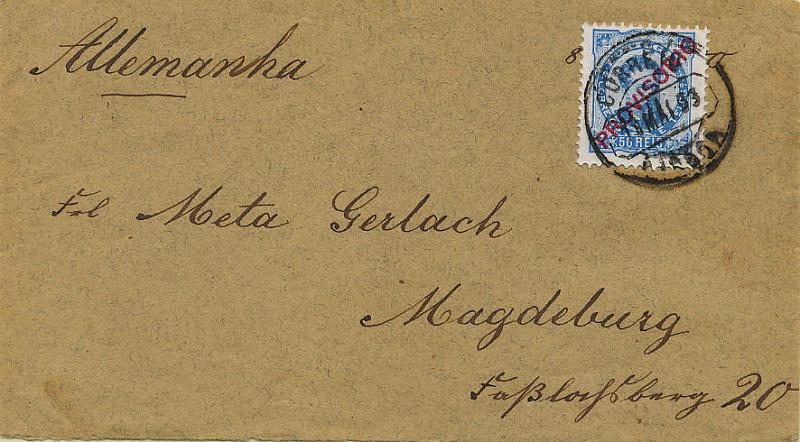 Allemanha
8
PROVISORIO
CORREIO
MAI. 93
50 REIS
LISBOA
Frl Meta Gerlach
Magdeburg
Faßlochsberg 20